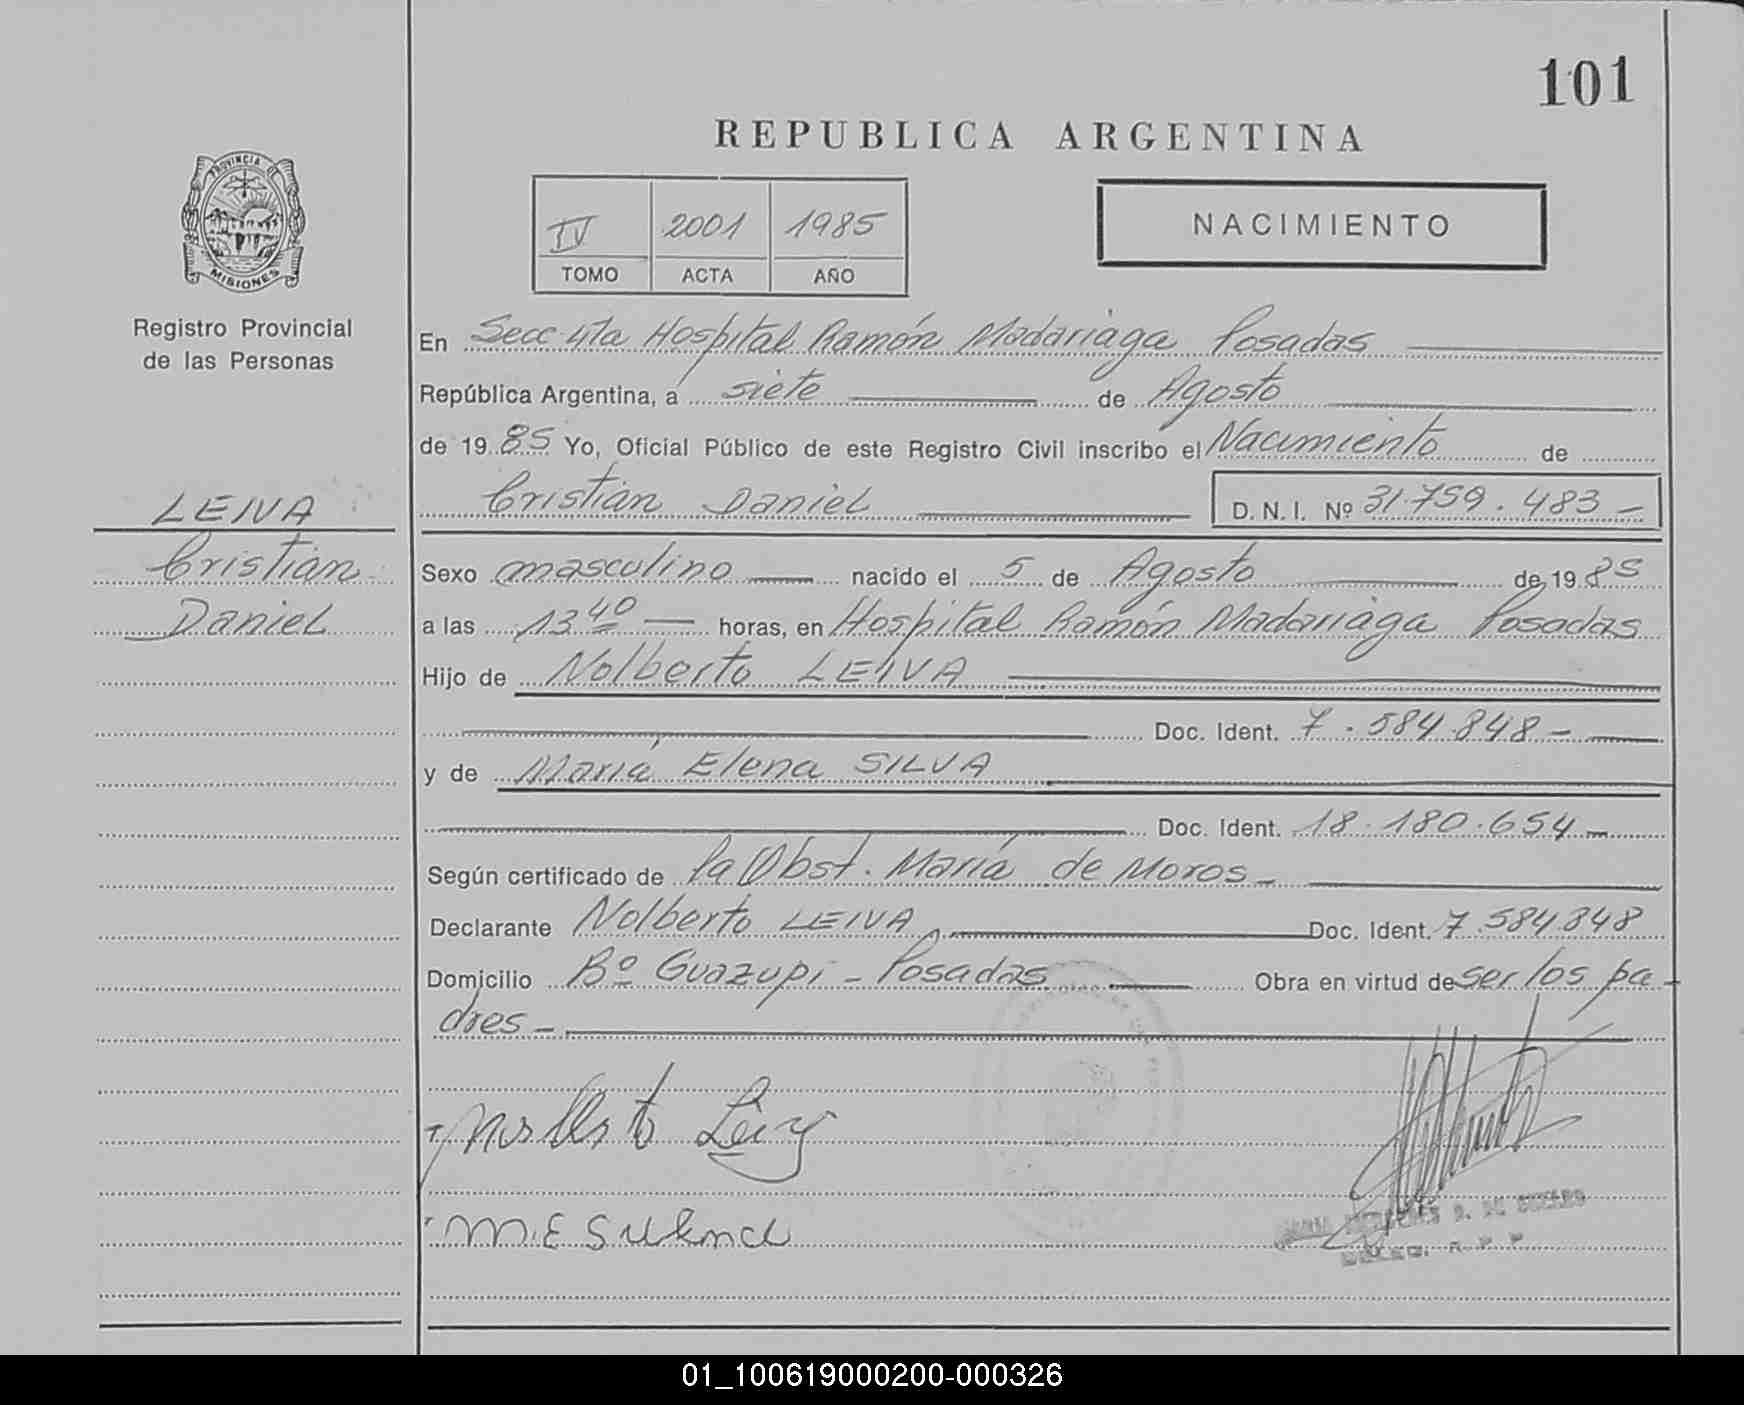 101
REPUBLICA ARGENTINA
PROVINCIA DE
MISIONES
Registro Provincial
de las Personas
IV 2001 1985
TOMO ACTA AÑO
NACIMIENTO
En Secc 4ta Hospital Ramón Madariaga Posadas
República Argentina, a siete de Agosto
de 1985 Yo, Oficial Público de este Registro Civil inscribo el Nacimiento de
Cristian Daniel D. N. I. Nº 31.759.483 -
LEIVA
Cristian
Daniel
Sexo masculino nacido el 5 de Agosto de 1985
a las 13 40 horas, en Hospital Ramón Madariaga Posadas
Hijo de Nolberto LEIVA
Doc. Ident. 7.584.848 -
y de María Elena SILVA
Doc. Ident. 18.180.654 -
Según certificado de la Obst. María de Moros -
Declarante Nolberto LEIVA Doc. Ident. 7.584.848
Domicilio Bº Guazupi - Posadas Obra en virtud de ser los pa-
dres -
M.E
01_100619000200-000326